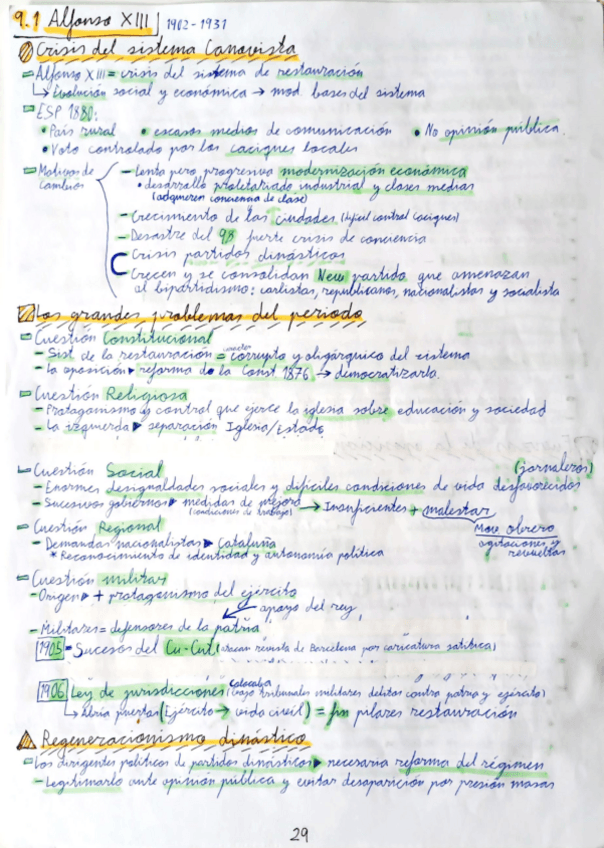 9.1 Alfonso XIII 1902-1931
Crisis del sistema Canovista
Alfonso XIII = crisis del sistema de restauración
↳ Evolución social y económica → mod. bases del sistema
ESP 1880:
• País rural • escasos medios de comunicación • No opinión pública
• Voto controlado por los caciques locales
Motivos de cambios
- Lenta pero progresiva modernización económica
• desarrollo proletariado industrial y clases medias
(adquieren conciencia de clase)
- Crecimiento de las ciudades (difícil control caciques)
- Desastre del 98 fuerte crisis de conciencia
- Crisis partidos dinásticos
- Crecen y se consolidan New partidos que amenazan
al bipartidismo: carlistas, republicanos, nacionalistas y socialista
Los grandes problemas del periodo
Cuestión Constitucional
- Sist de la restauración = caracter corrupto y oligárquico del sistema
- La oposición ▸ reforma de la Const 1876 → democratizarla.
Cuestión Religiosa
- Protagonismo y control que ejerce la iglesia sobre educación y sociedad
- La izquierda ▸ separación Iglesia/Estado
Cuestión Social (jornaleros)
- Enormes desigualdades sociales y difíciles condiciones de vida desfavorecidos
- Sucesivos gobiernos ▸ medidas de mejora (condiciones de trabajo) → Insuficientes + malestar
Mov. obrero
agitaciones y
revueltas
Cuestión Regional
- Demandas nacionalistas ▸ Cataluña
* Reconocimiento de identidad y autonomía política
Cuestión militar
- Origen ▸ + protagonismo del ejército
apoyo del rey
- Militares = defensores de la patria
1905 - Sucesos del Cu-Cut (atacan revista de Barcelona por caricatura satírica)
1906 Ley de jurisdicciones (colocaba bajo tribunales militares delitos contra patria y ejército)
↳ Abría puertas (Ejército → vida civil) = fin pilares restauración
Regeneracionismo dinástico
Los dirigentes políticos de partidos dinásticos ▸ necesaria reforma del régimen
- Legitimarlo ante opinión pública y evitar desaparición por presión masas
29